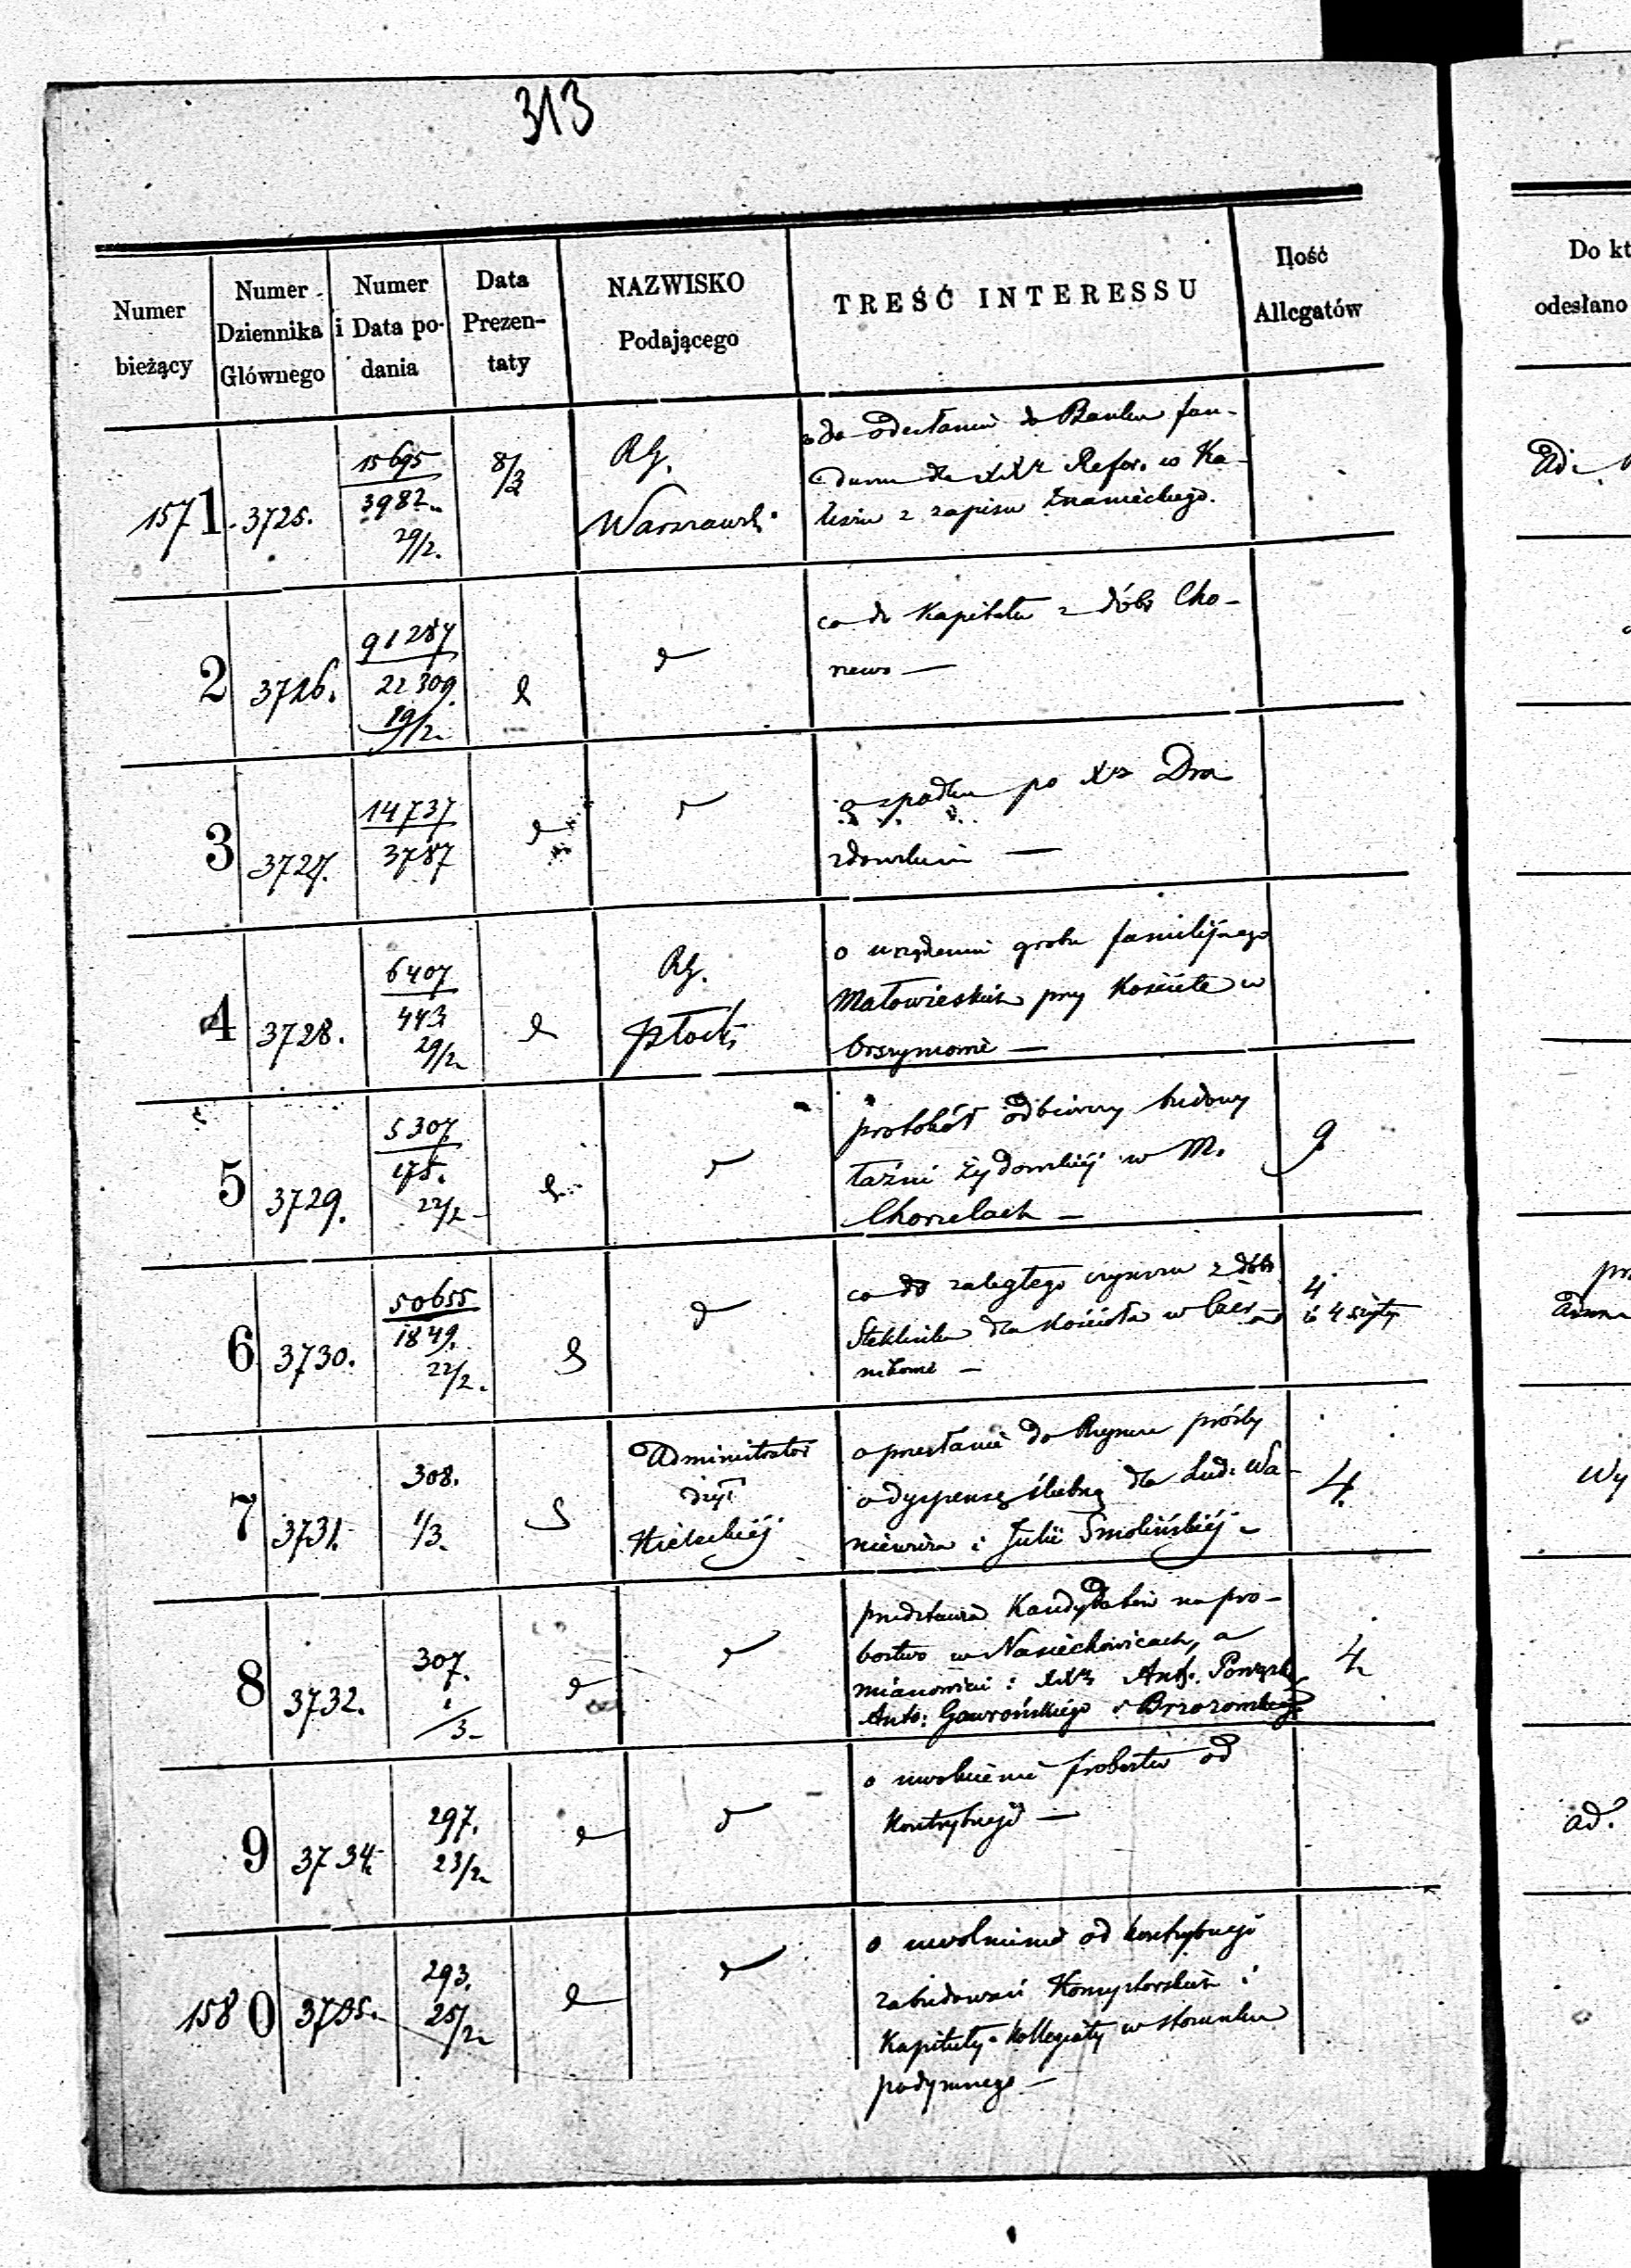 313
Numer bieżący
Numer Dziennika Głównego
Numer i Data podania
Data Prezentaty
NAZWISKO Podającego
TREŚĆ INTERESSU
Ilość Allegatów
Do kt
odesłano
1571. 3725.
15695
3982
29/2.
8/3
RG.
Warszawski
co do odesłania do Banku fun-
duszu dla XX Refor. w Ka-
liszu z zapisu Znanieckiego.
2 3726.
91287
22309.
19/2.
co do Kapitału z dóbr Cho-
newo —
3 3727.
14737
3787
o spadku po Xs Dro
zdowskim —
4 3728.
6407
443
29/2
RG.
Płocki
o urządzeniu grobu familijnego
Małowieskich przy Kościele w
5 3729.
5307
175.
22/2
protokół odbiorczy budowy
łaźni żydowskiej w M.
Chorzelach —
9
6 3730.
50655
1849.
22/2.
co do zaległego czynszu z dóbr
Steklinka dla Kościoła w Czer-
nikowie —
4
7 3731.
308.
1/3.
Administrator
dyec
Kieleckiéj
o przesłanie do Rzymu prośby
o dyspensę ślubną dla Lud: Wa-
niewicza i Julii Smolińskiéj
4.
Wy
8 3732.
307.
1/3
przedstawia Kandydatów na pro-
bostwo w Nasiechowicach, a
mianowicie: XX Ant.
Anto: Gawrońskiego i Brzozowskiego
4
9 3734.
297.
23/2
o uwolnienie probostw od
Kontrybucji —
ad.
1580 3735.
293.
25/2
o uwolnienie od kontrybucji
zabudowań Konsystorskich i
Kapituły Kollegiaty w stosunku
podymnego —